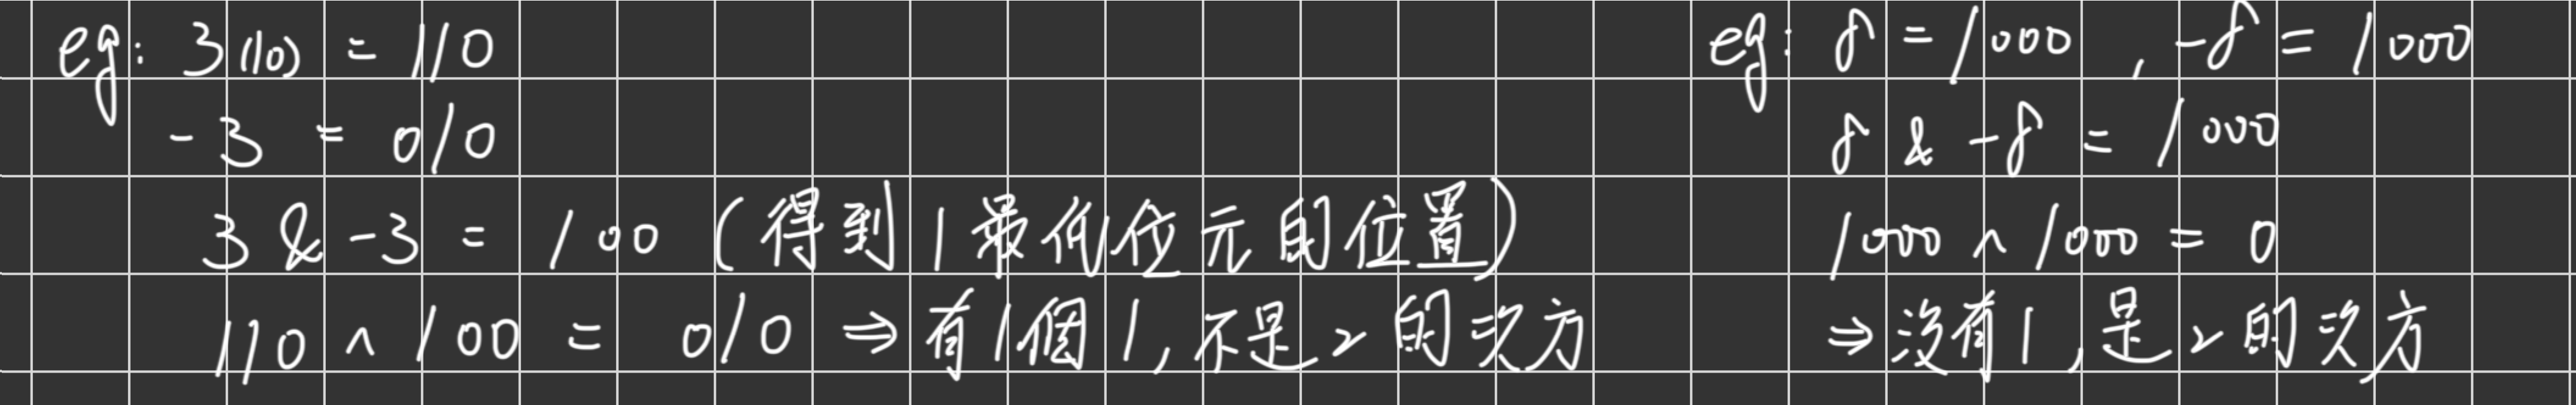 eg: 3(10) = 110
-3 = 010
3 & -3 = 100 (得到1最低位元的位置)
110 ^ 100 = 010 ⇒ 有1個1, 不是2的次方
eg: 8 = 1000 , -8 = 1000
8 & -8 = 1000
1000 ^ 1000 = 0
⇒ 沒有1, 是2的次方